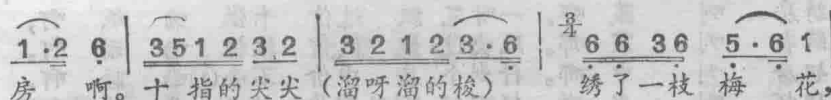 1·2 6 | 3512 3 2 | 3 2 1 2 3·6 | 3/4 6 6 36 5·6 1
房 啊。十 指的尖尖 (溜呀溜的梭) 绣了一枝 梅 花,